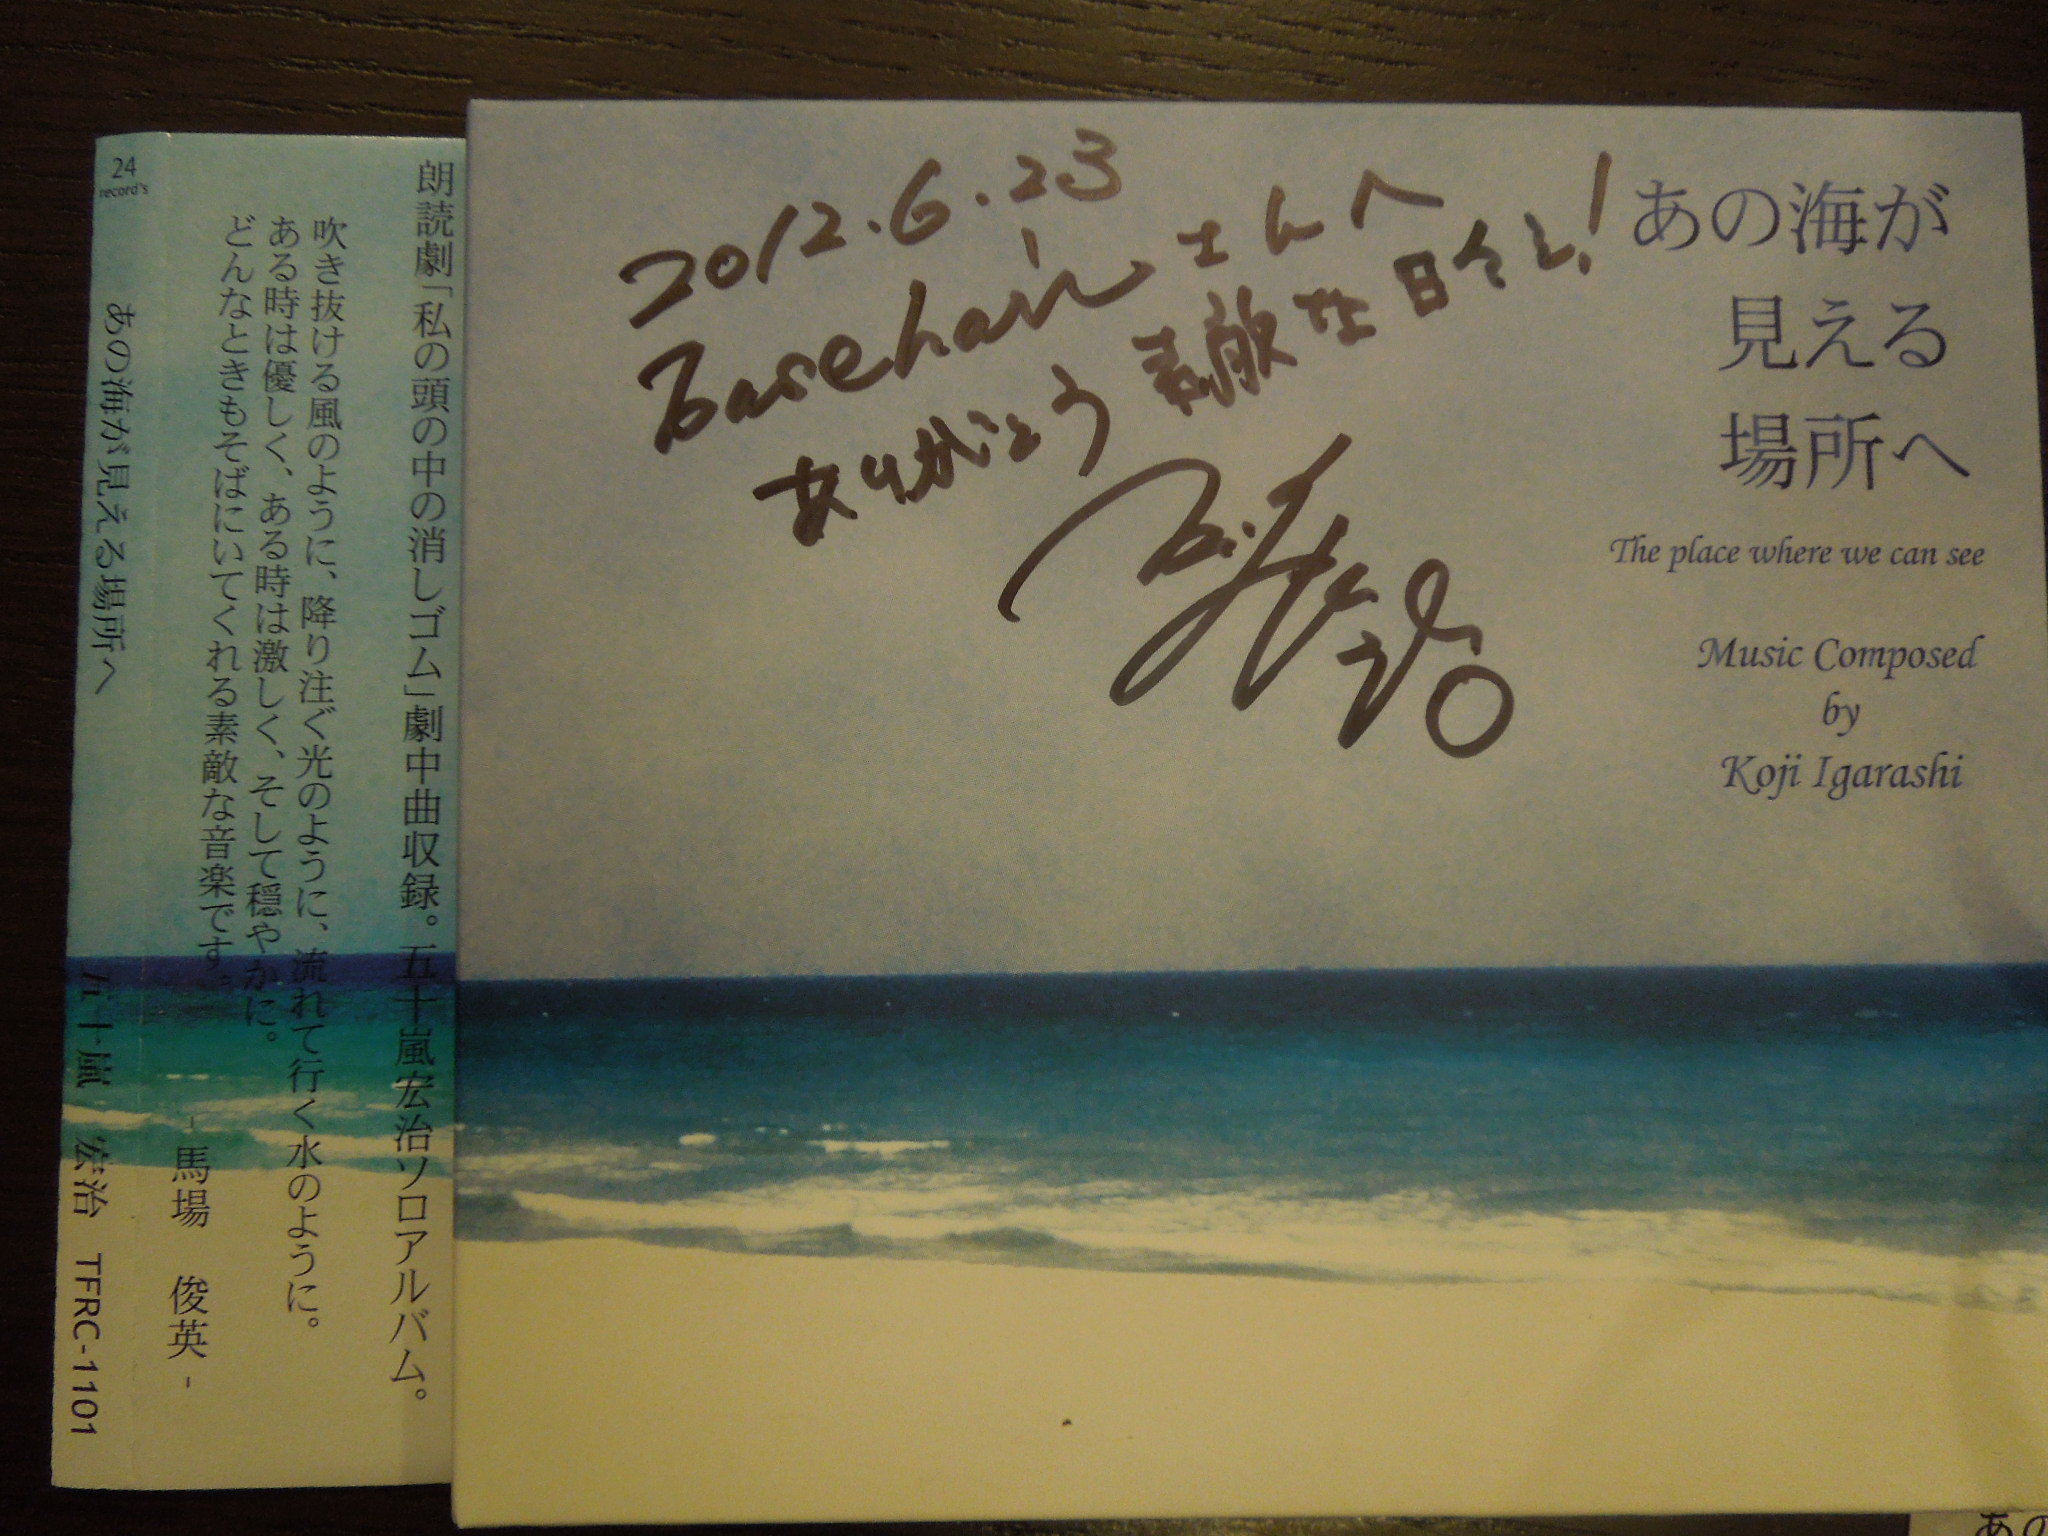 24
record's
あの海が見える場所へ
五十嵐 宏治 TFRC-1101
朗読劇「私の頭の中の消しゴム」劇中曲収録。五十嵐宏治ソロアルバム。
吹き抜ける風のように、降り注ぐ光のように、流れて行く水のように。
ある時は優しく、ある時は激しく、そして穏やかに。
どんなときもそばにいてくれる素敵な音楽です。
- 馬場 俊英 -
2012.6.23
Basehairさんへ
ありがとう 素敵な日々を!
あの海が
見える
場所へ
The place where we can see
Music Composed
by
Koji Igarashi
あの